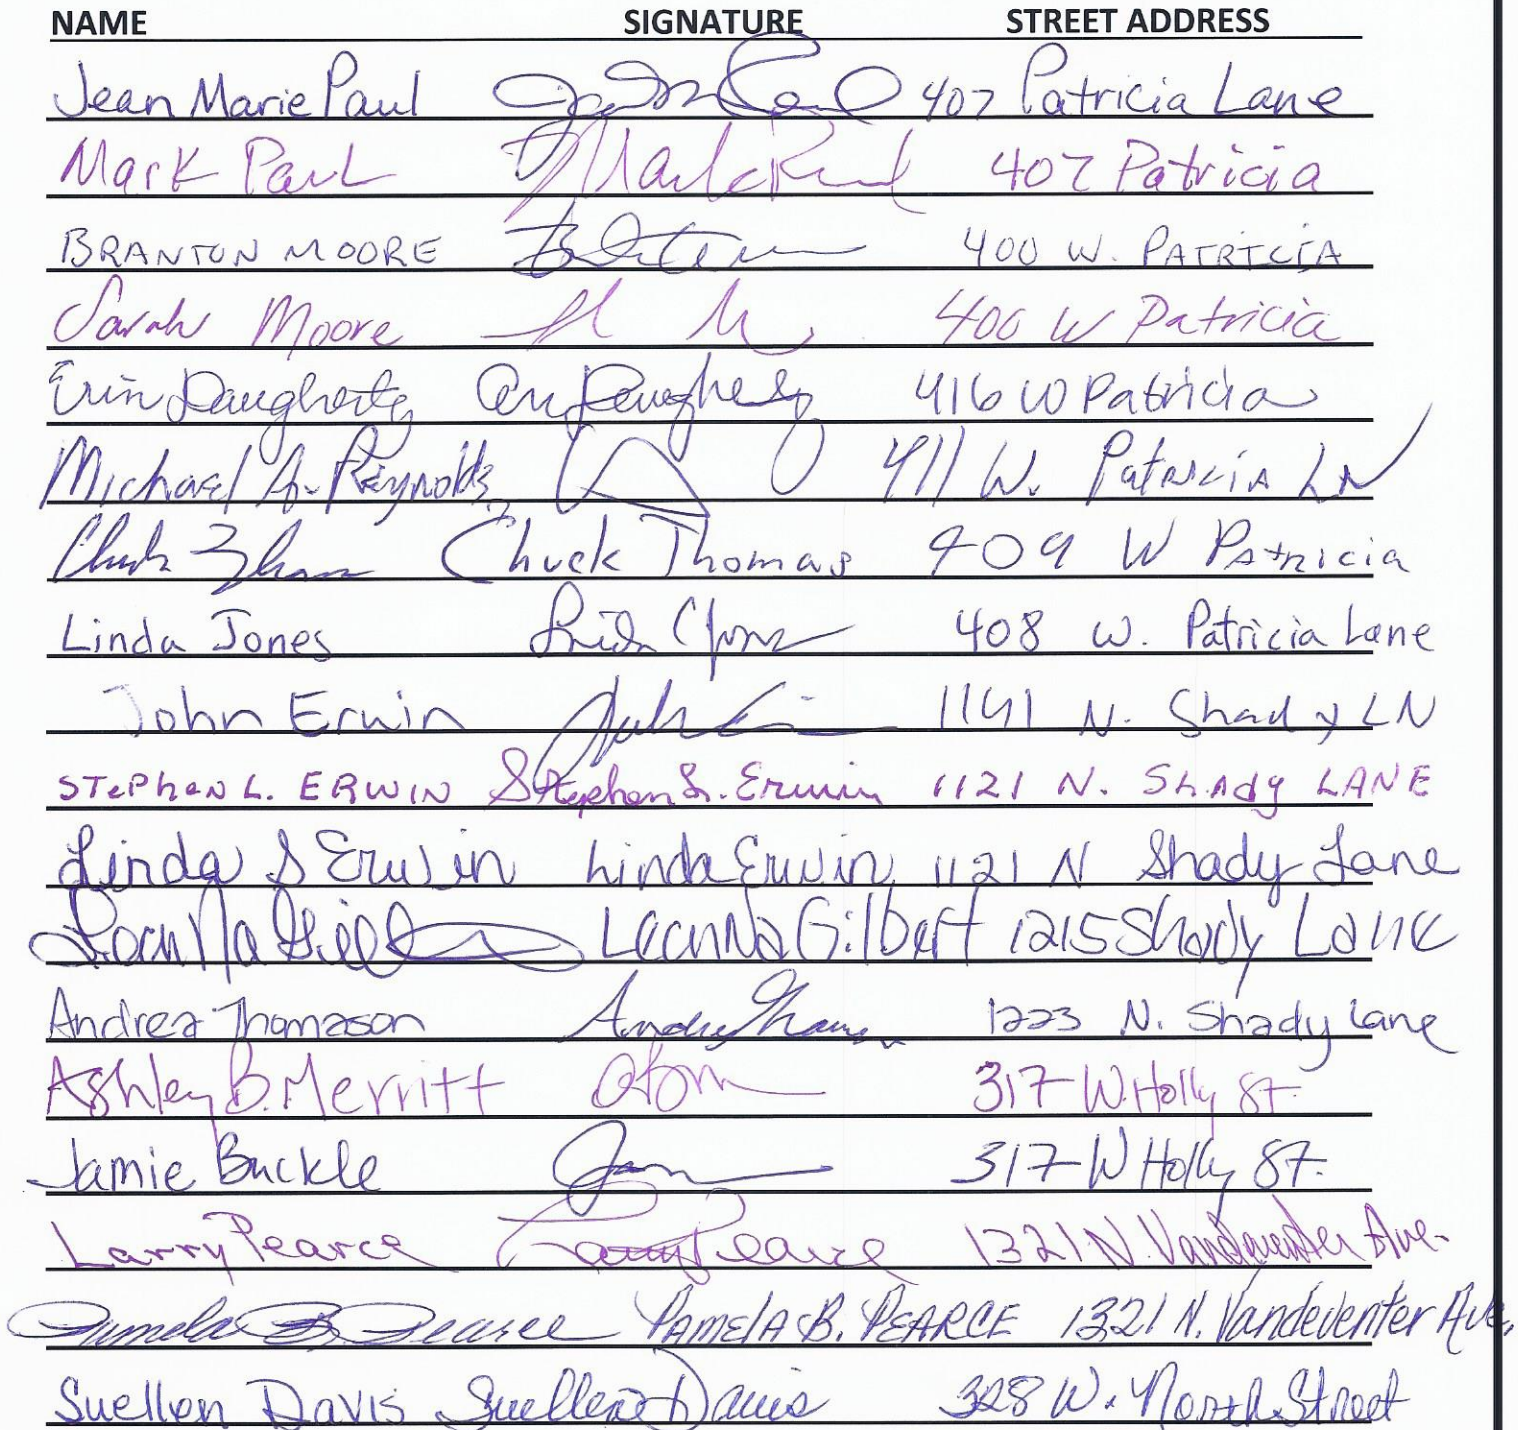 NAME SIGNATURE STREET ADDRESS
Jean Marie Paul 407 Patricia Lane
Mark Paul Mark Paul 407 Patricia
BRANTON MOORE 400 W. PATRICIA
Sarah Moore 400 W Patricia
Erin Daugherty Erin Daugherty 416 W Patricia
Michael A. Reynolds 411 W. Patricia LN
Chuck Thomas Chuck Thomas 409 W Patricia
Linda Jones Linda Jones 408 W. Patricia Lane
John Erwin John Erwin 1141 N. Shady LN
STePhen L. ERWIN Stephen L. Erwin 1121 N. Shady LANE
Linda S Erwin Linda Erwin 1121 N Shady Lane
LeanNa Gilbert LeanNa Gilbert 1215 Shady Lane
Andrea Thomason Andrea 1223 N. Shady Lane
Ashley B. Merritt 317 W. Holly St.
Jamie Buckle 317 W Holly St.
Larry Pearce Larry Pearce 1321 N. Vandeventer Ave.
Pamela B. Pearce PAMElA B. PEARCE 1321 N. Vandeventer Ave.
Suellen Davis Suellen Davis 328 W. North Street